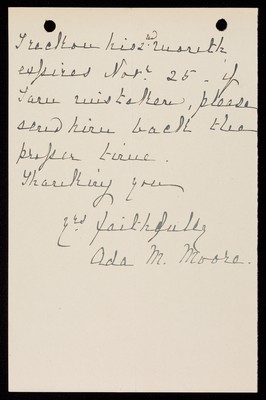 I reckon his 2nd month
expires Novr. 25 - if
I am mistaken, please
send him back the
proper time.
Thanking you
yrs faithfully
Ada M. Moore.